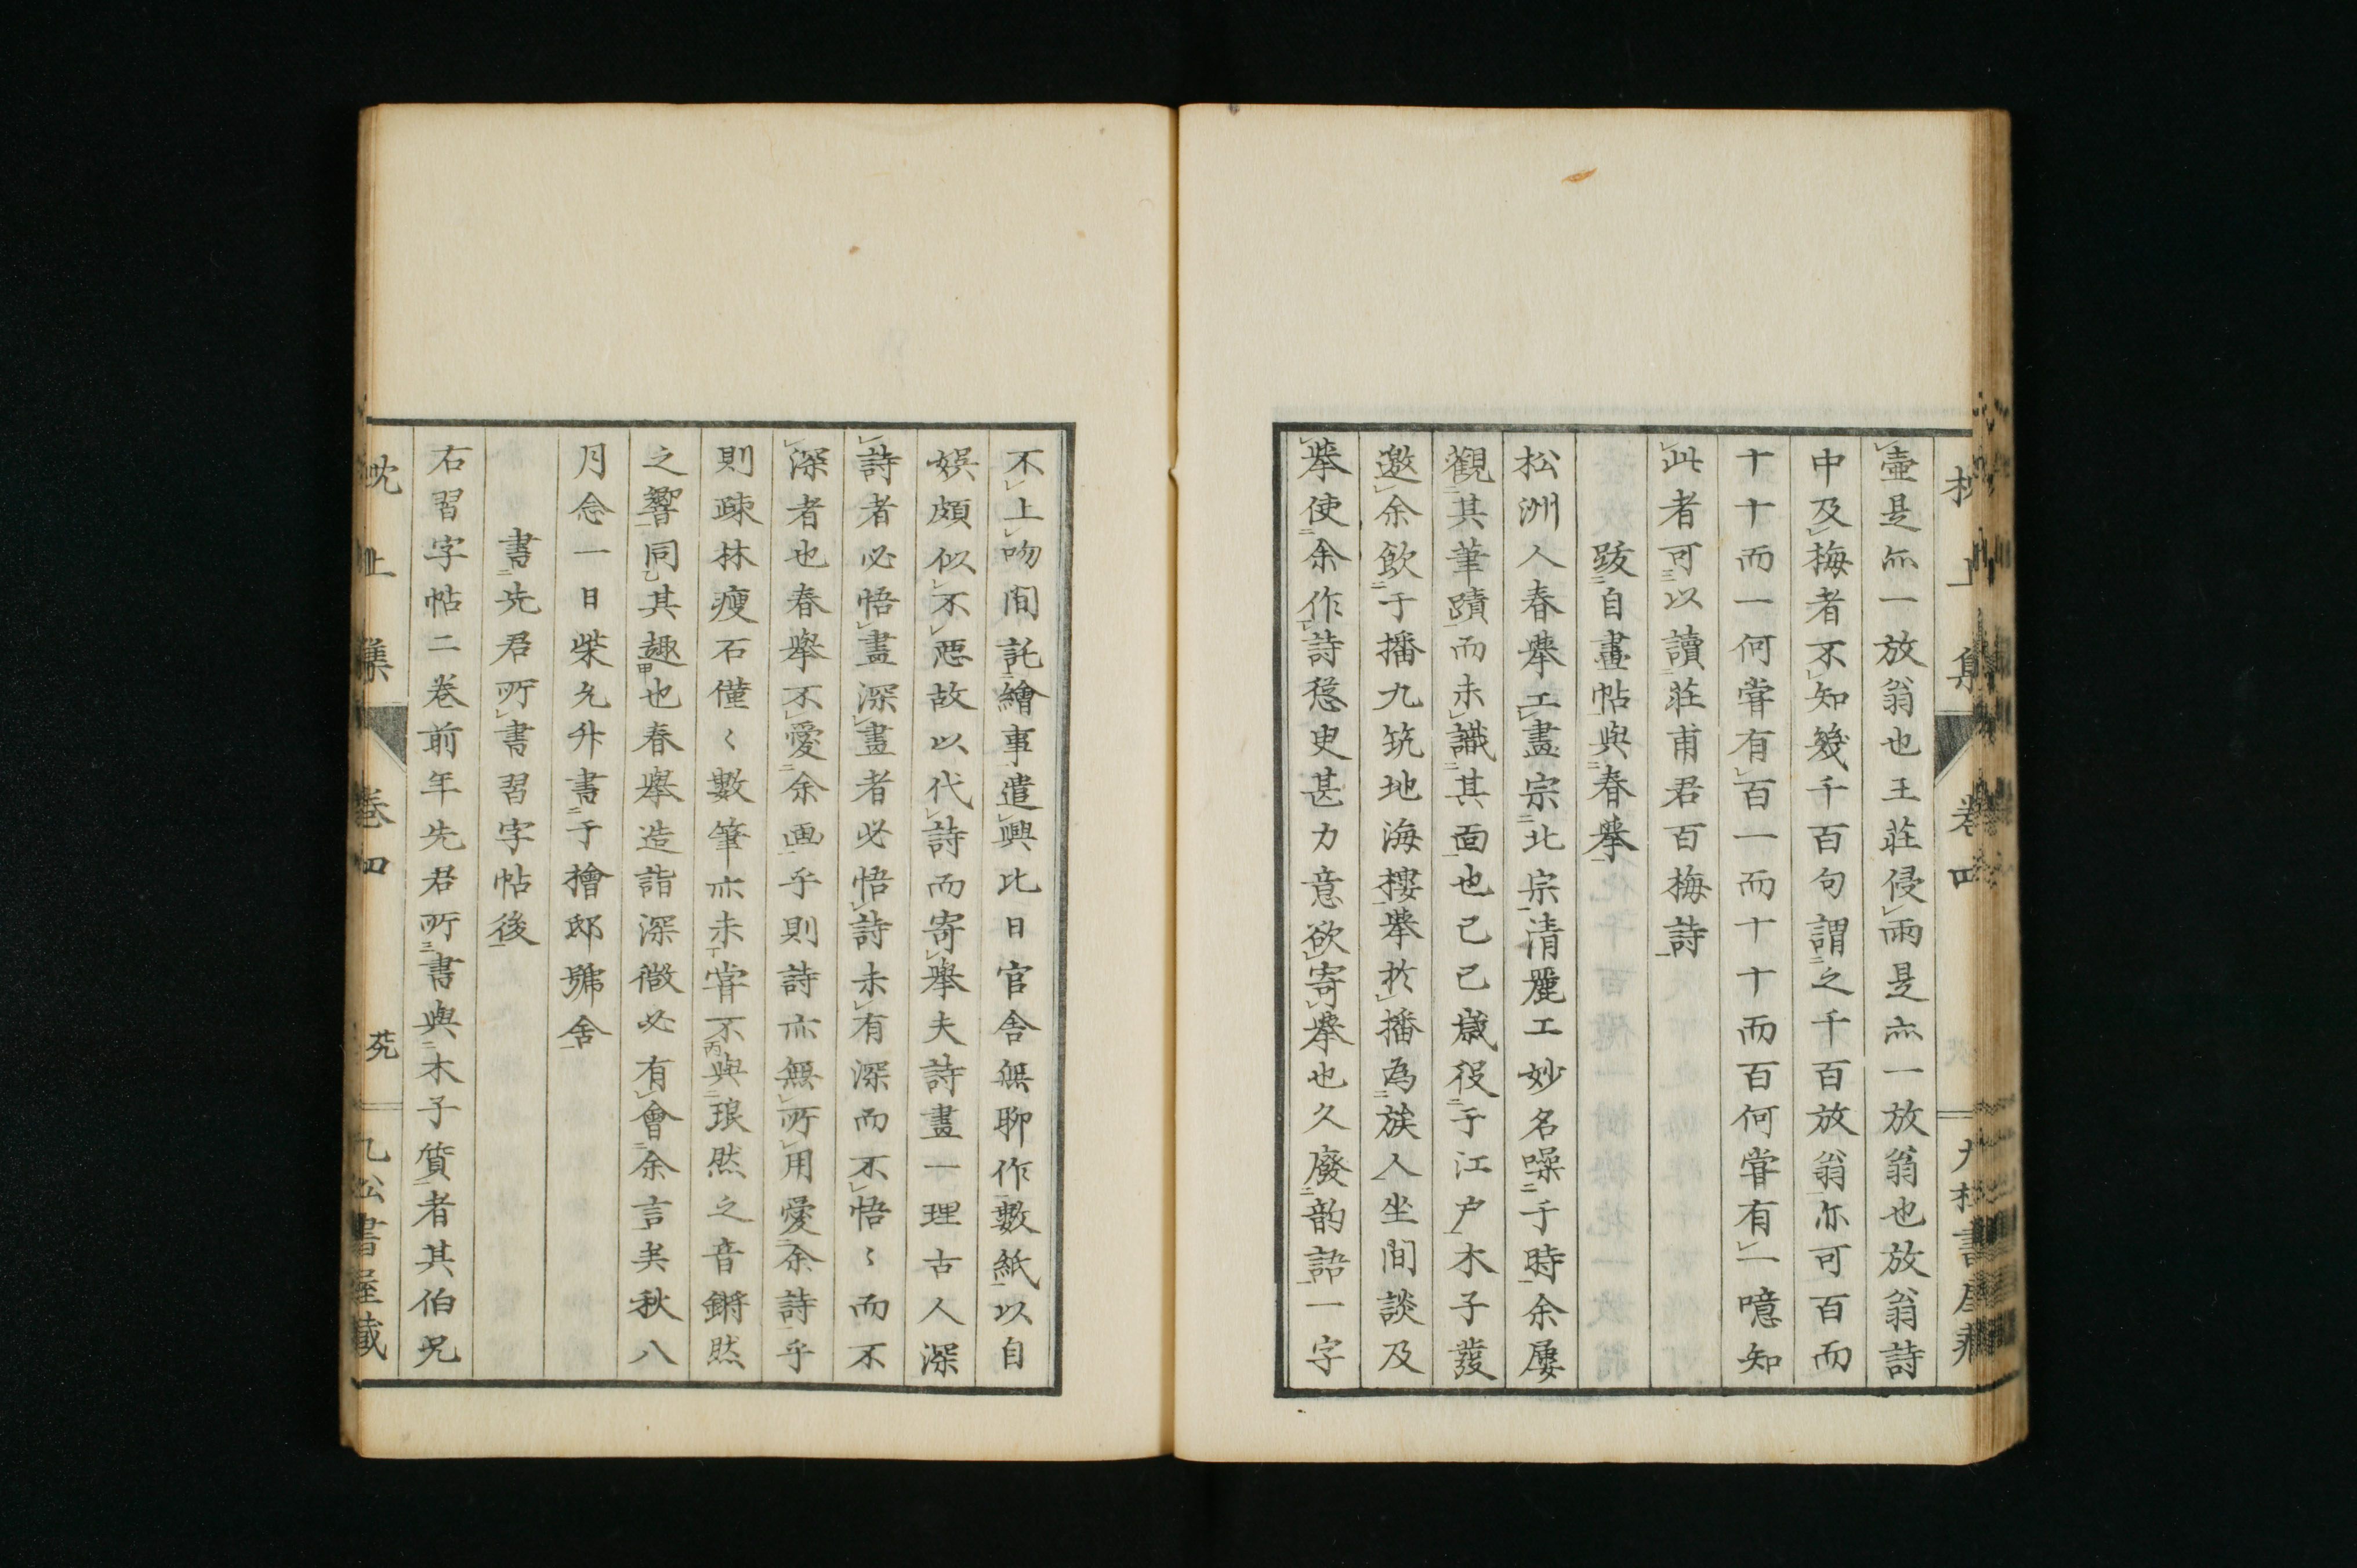 壷是尓一放翁也王莊侵雨是亦一放翁也放翁詩
中及梅者不知幾千百句謂之千百放翁亦可百而
十十而一何嘗有百一而十十而百何嘗有一噫知
此者可以讀莊甫君百梅詩
跋自畫帖與春擧
松洲人春擧工畫宗北宗清麗工妙名噪于時余屢
觀其筆蹟而未識其面也己巳歳役于江户木子發
邀余飲于播九筑地海樓擧於播為族人坐間談及
擧使余作詩慫叟甚力意欲寄擧也久廢韵語一字
不上吻間託繪事遣興比日官舎無聊作數紙以自
娯頗似不惡故以代詩而寄擧夫詩畫一理古人深
詩者必悟畫深畫者必悟詩未有深而不悟〻而不
深者也春擧不愛余画乎則詩亦無所用愛余詩乎
則疎林瘦石僅〻數筆亦未嘗不與琅然之音鏘然
之響同其趣也春擧造詣深微必有會余言矣秋八
月念一日柴允升書于檜邸號舎
書先君所書習字帖後
右習字帖二卷前年先君所書與木子質者其伯兄
卷四
九松書屋藏